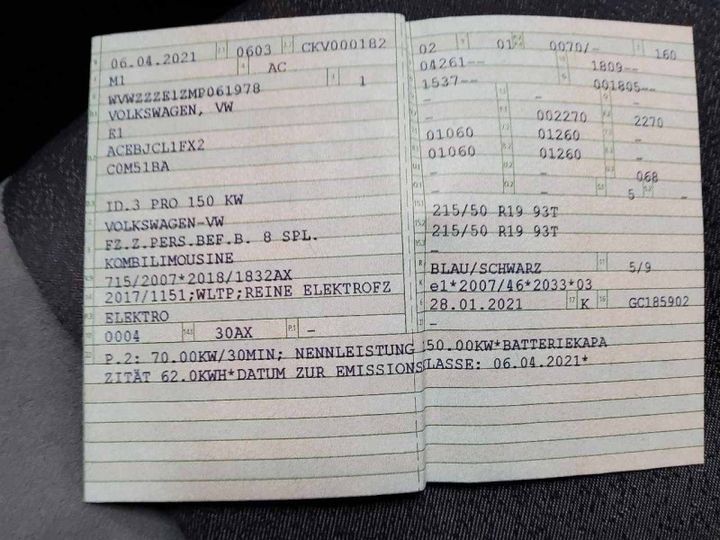 06.04.2021 0603 CKV000182
M1 AC
WVWZZZE1ZMP061978 1
VOLKSWAGEN, VW
E1
ACEBJCL1FX2
C0M51BA
ID.3 PRO 150 KW
VOLKSWAGEN-VW
FZ.Z.PERS.BEF.B. 8 SPL.
KOMBILIMOUSINE
715/2007*2018/1832AX
2017/1151;WLTP;REINE ELEKTROFZ
ELEKTRO
0004 30AX P.1 -
P.2: 70.00KW/30MIN; NENNLEISTUNG 50.00KW*BATTERIEKAPA
ZITÄT 62.0KWH*DATUM ZUR EMISSIONSKLASSE: 06.04.2021*
02 01 0070/- 160
04261-- 1809--
1537-- 001805--
- -
- 002270 2270
01060 01260 -
01060 01260 -
- - 068
- - 5 -
215/50 R19 93T
215/50 R19 93T
-
BLAU/SCHWARZ 5/9
e1*2007/46*2033*03
28.01.2021 17 K 16 GC185902
-